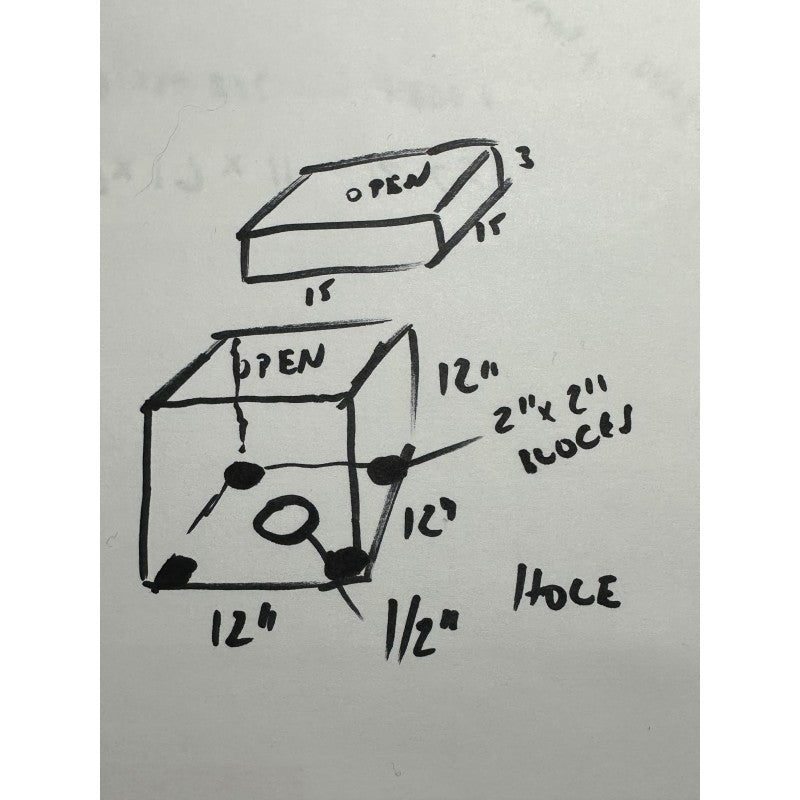 OPEN
3
15
15
OPEN
12"
2" x 2"
12"
12"
1/2"
HOLE